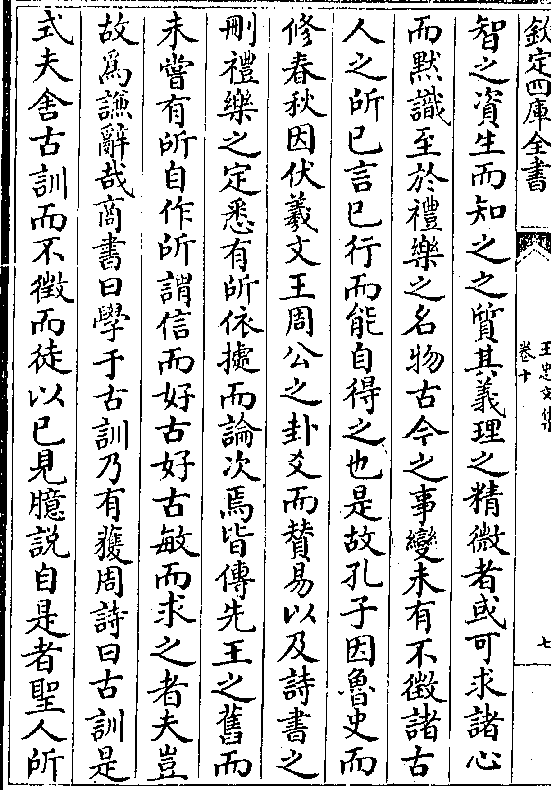 欽定四庫全書
王忠文集
卷十
七
智之資生而知之之質其義理之精微者或可求諸心
而默識至於禮樂之名物古今之事變未有不徵諸古
人之所已言已行而能自得之也是故孔子因魯史而
修春秋因伏羲文王周公之卦爻而賛易以及詩書之
刪禮樂之定悉有所依據而論次焉皆傳先王之舊而
未嘗有所自作所謂信而好古好古敏而求之者夫豈
故為謙辭哉商書曰學于古訓乃有獲周詩曰古訓是
式夫舍古訓而不徵而徒以已見臆説自是者聖人所